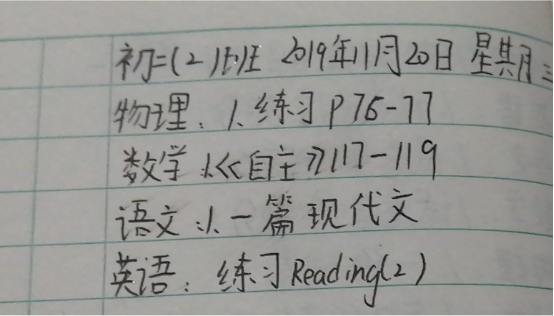 初二(2)班 2019年11月20日 星期三
物理：1、练习P76-77
数学：1.《自主》117-119
语文：1.一篇现代文
英语：练习Reading(2)